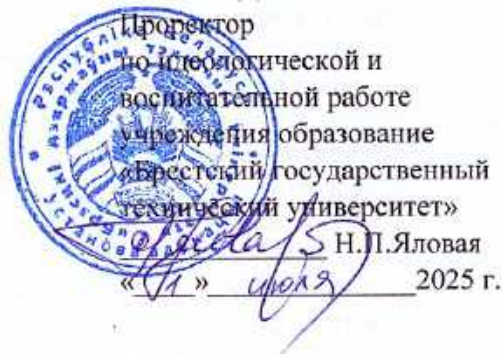 Проректор
по идеологической и
воспитательной работе
учреждения образование
«Брестский государственный
технический университет»
Н.П.Яловая
« » июля 2025 г.